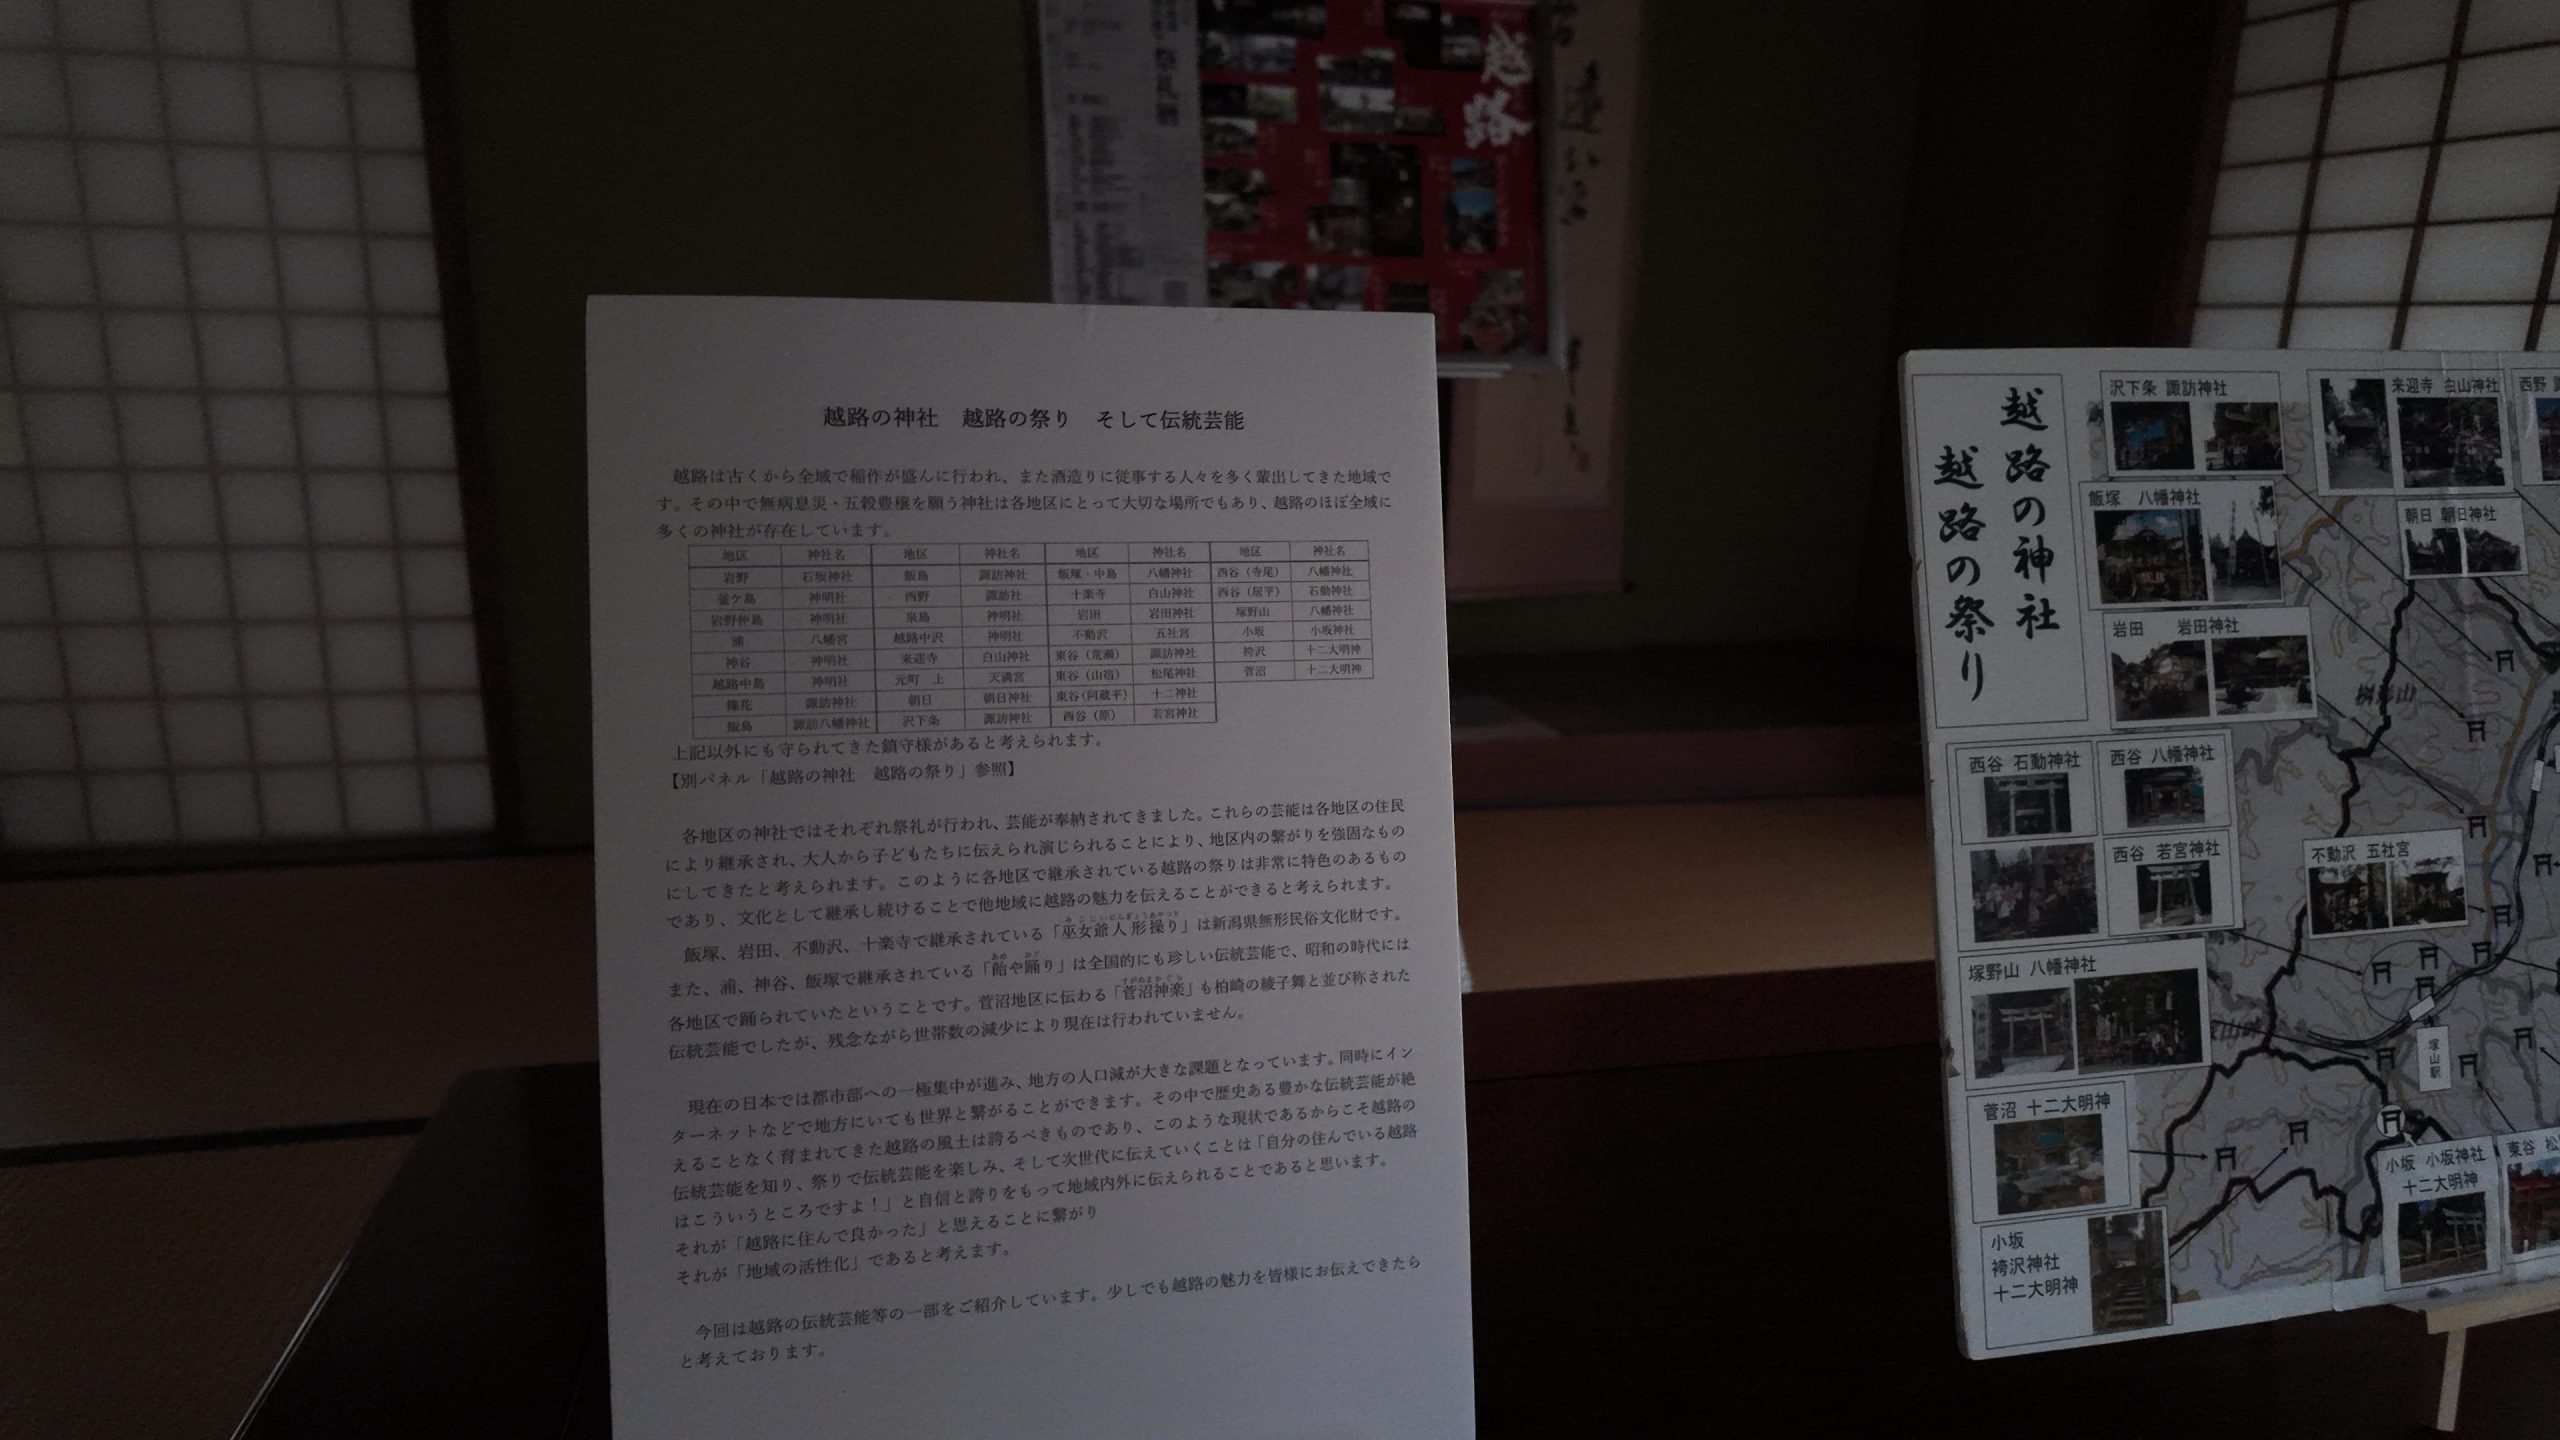 越路
祭礼暦
越路の神社　越路の祭り　そして伝統芸能
越路は古くから全域で稲作が盛んに行われ、また酒造りに従事する人々を多く輩出してきた地域で
す。その中で無病息災・五穀豊穣を願う神社は各地区にとって大切な場所でもあり、越路のほぼ全域に
多くの神社が存在しています。
地区 神社名 地区 神社名 地区 神社名 地区 神社名
岩野 石坂神社 飯島 諏訪神社 飯塚・中島 八幡神社 西谷（寺尾） 八幡神社
釜ケ島 神明社 西野 諏訪社 十楽寺 白山神社 西谷（居平） 石動神社
岩野仲島 神明社 泉島 神明社 岩田 岩田神社 塚野山 八幡神社
浦 八幡宮 越路中沢 神明社 不動沢 五社宮 小坂 小坂神社
神谷 神明社 来迎寺 白山神社 東谷（荒瀬） 諏訪神社 袴沢 十二大明神
越路中島 神明社 元町　上 天満宮 東谷（山宿） 松尾神社 菅沼 十二大明神
篠花 諏訪神社 朝日 朝日神社 東谷（阿蔵平） 十二神社
飯島 諏訪八幡神社 沢下条 諏訪神社 西谷（原） 若宮神社
上記以外にも守られてきた鎮守様があると考えられます。
【別パネル「越路の神社　越路の祭り」参照】
各地区の神社ではそれぞれ祭礼が行われ、芸能が奉納されてきました。これらの芸能は各地区の住民
により継承され、大人から子どもたちに伝えられ演じられることにより、地区内の繋がりを強固なもの
にしてきたと考えられます。このように各地区で継承されている越路の祭りは非常に特色のあるもの
であり、文化として継承し続けることで他地域に越路の魅力を伝えることができると考えられます。
飯塚、岩田、不動沢、十楽寺で継承されている「巫女爺人形操り」は新潟県無形民俗文化財です。
また、浦、神谷、飯塚で継承されている「飴や踊り」は全国的にも珍しい伝統芸能で、昭和の時代には
各地区で踊られていたということです。菅沼地区に伝わる「菅沼神楽」も柏崎の綾子舞と並び称された
伝統芸能でしたが、残念ながら世帯数の減少により現在は行われていません。
現在の日本では都市部への一極集中が進み、地方の人口減が大きな課題となっています。同時にイン
ターネットなどで地方にいても世界と繋がることができます。その中で歴史ある豊かな伝統芸能が絶
えることなく育まれてきた越路の風土は誇るべきものであり、このような現状であるからこそ越路の
伝統芸能を知り、祭りで伝統芸能を楽しみ、そして次世代に伝えていくことは「自分の住んでいる越路
はこういうところですよ！」と自信と誇りをもって地域内外に伝えられることであると思います。
それが「越路に住んで良かった」と思えることに繋がり
それが「地域の活性化」であると考えます。
今回は越路の伝統芸能等の一部をご紹介しています。少しでも越路の魅力を皆様にお伝えできたら
と考えております。
越路の神社
越路の祭り
沢下条 諏訪神社
来迎寺 白山神社
西野
飯塚 八幡神社
朝日 朝日神社
岩田 岩田神社
西谷 石動神社
西谷 八幡神社
西谷 若宮神社
不動沢 五社宮
塚野山 八幡神社
塚山駅
菅沼 十二大明神
小坂 小坂神社
十二大明神
東谷
小坂
袴沢神社
十二大明神